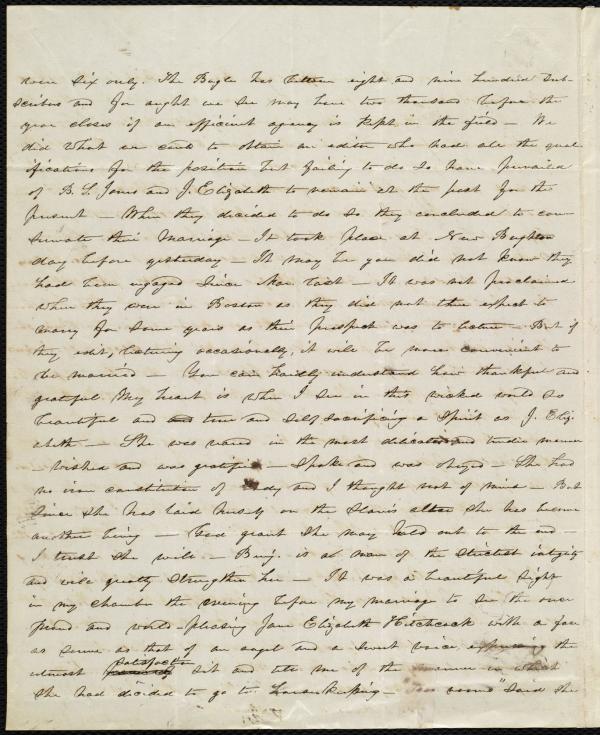 were six only. The Bugle has between eight and nine hundred sub-
scribers and for aught we see may have two thousand before the
year closes if an efficient agency is kept in the field – We
did what we could to obtain an editor who had all the qual-
ifications for the position but failing to do so have prevailed
of B. S. Jones and J. Elizabeth to remain at the post for the
present – When they decided to do so they concluded to con-
summate their marriage – It took place at New Brighton
day before yesterday – It may be you did not know they
had been engaged since Nov last – It was not proclaimed
when they were in Boston as they did not then expect to
marry for some years as their prospect was to lecture – But if
they edit, lecturing occasionally, it will be more convenient to
be married – You can hardly understand how thankful and
grateful my heart is when I see in this wicked world so
beautiful and true and self sacrificing a spirit as J. Eliz-
abeth – She was reared in the most delicate and tender manner
– wished and was gratified – Spoke and was obeyed – She had
no iron constitution of body and I thought not of mind – But
since she has laid herself on the slave's altar she has become
another being – God grant she may hold out to the end –
I trust she will – Benj. is a man of the strictest integrity
and will greatly strengthen her – It was a beautiful sight
in my chamber the evening before my marriage to see the once
proud and world-pleasing Jane Elizabeth Hitchcock with a face
as serene as that of an angel and a sweet voice expressing the
utmost satisfaction sit and tell me of the manner in which
she had decided to go to housekeeping – rooms" said she